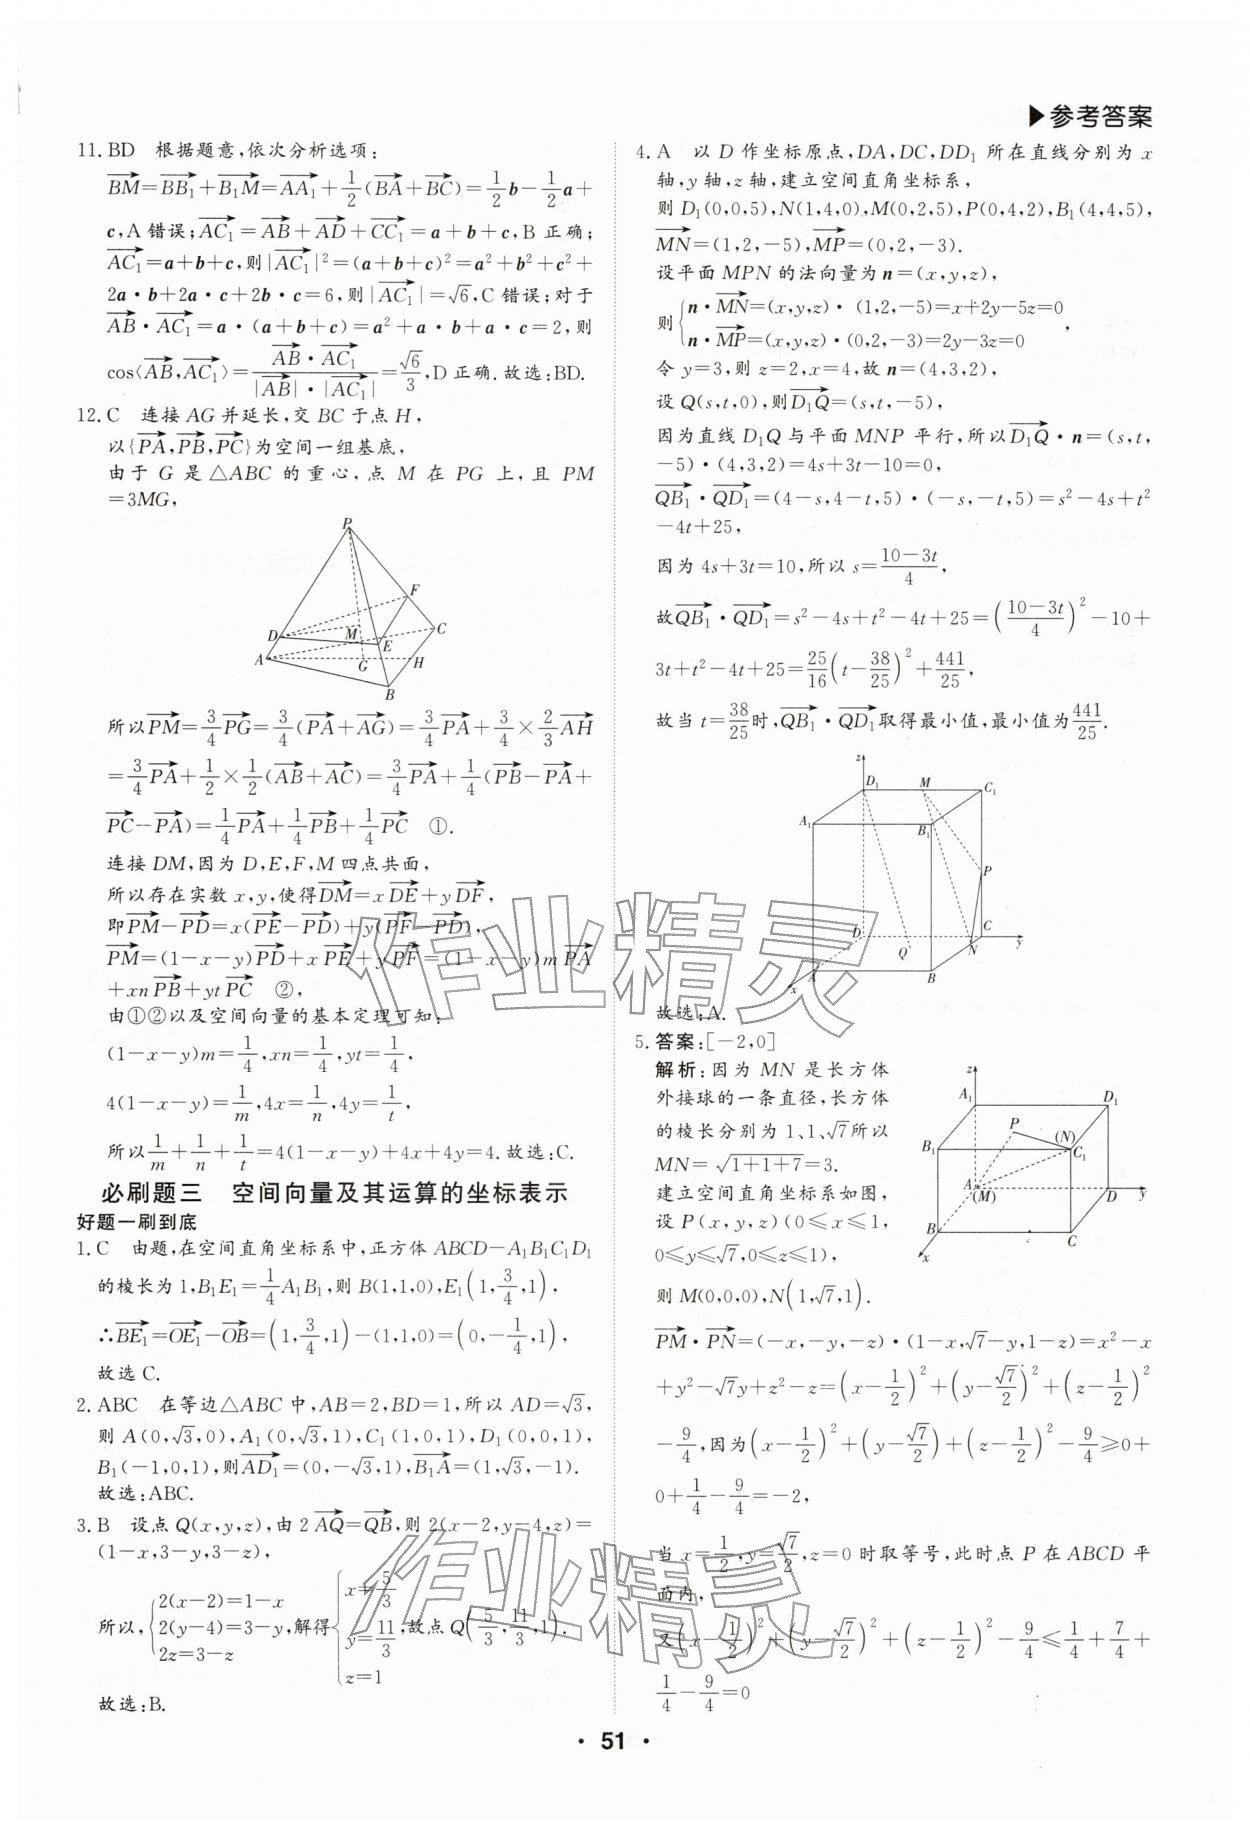 ▶参考答案
11. BD 根据题意,依次分析选项:
$\overrightarrow{BM}=\overrightarrow{BB_1}+\overrightarrow{B_1M}=\overrightarrow{AA_1}+\frac{1}{2}(\overrightarrow{BA}+\overrightarrow{BC})=\frac{1}{2}b-\frac{1}{2}a+$
c,A 错误;$\overrightarrow{AC_1}=\overrightarrow{AB}+\overrightarrow{AD}+\overrightarrow{CC_1}=a+b+c$,B 正确;
$\overrightarrow{AC_1}=a+b+c$,则$|\overrightarrow{AC_1}|^2=(a+b+c)^2=a^2+b^2+c^2+$
$2a·b+2a·c+2b·c=6$,则$|\overrightarrow{AC_1}|=\sqrt{6}$,C 错误;对于
$\overrightarrow{AB}·\overrightarrow{AC_1}=a·(a+b+c)=a^2+a·b+a·c=2$,则
$\cos\langle\overrightarrow{AB},\overrightarrow{AC_1}\rangle=\frac{\overrightarrow{AB}·\overrightarrow{AC_1}}{|\overrightarrow{AB}|·|\overrightarrow{AC_1}|}=\frac{\sqrt{6}}{3}$,D 正确.故选:BD.
12. C 连接 AG 并延长,交 BC 于点 H,
以$\{\overrightarrow{PA},\overrightarrow{PB},\overrightarrow{PC}\}$为空间一组基底,
由于 G 是△ABC 的重心,点 M 在 PG 上,且 PM
=3MG,
P
F
D
M
E
C
A
G
H
B
所以$\overrightarrow{PM}=\frac{3}{4}\overrightarrow{PG}=\frac{3}{4}(\overrightarrow{PA}+\overrightarrow{AG})=\frac{3}{4}\overrightarrow{PA}+\frac{3}{4}×\frac{2}{3}\overrightarrow{AH}$
$=\frac{3}{4}\overrightarrow{PA}+\frac{1}{2}×\frac{1}{2}(\overrightarrow{AB}+\overrightarrow{AC})=\frac{3}{4}\overrightarrow{PA}+\frac{1}{4}(\overrightarrow{PB}-\overrightarrow{PA}+$
$\overrightarrow{PC}-\overrightarrow{PA})=\frac{1}{4}\overrightarrow{PA}+\frac{1}{4}\overrightarrow{PB}+\frac{1}{4}\overrightarrow{PC}$ ①.
连接 DM,因为 D,E,F,M 四点共面,
所以存在实数 x,y,使得$\overrightarrow{DM}=x\overrightarrow{DE}+y\overrightarrow{DF}$,
即$\overrightarrow{PM}-\overrightarrow{PD}=x(\overrightarrow{PE}-\overrightarrow{PD})+y(\overrightarrow{PF}-\overrightarrow{PD})$,
$\overrightarrow{PM}=(1-x-y)\overrightarrow{PD}+x\overrightarrow{PE}+y\overrightarrow{PF}=(1-x-y)m\overrightarrow{PA}$
$+xn\overrightarrow{PB}+yt\overrightarrow{PC}$ ②,
由①②以及空间向量的基本定理可知:
$(1-x-y)m=\frac{1}{4},xn=\frac{1}{4},yt=\frac{1}{4}$,
$4(1-x-y)=\frac{1}{m},4x=\frac{1}{n},4y=\frac{1}{t}$,
所以$\frac{1}{m}+\frac{1}{n}+\frac{1}{t}=4(1-x-y)+4x+4y=4$.故选:C.
必刷题三 空间向量及其运算的坐标表示
好题一刷到底
1. C 由题,在空间直角坐标系中,正方体 $ABCD-A_1B_1C_1D_1$
的棱长为 1,$B_1E_1=\frac{1}{4}A_1B_1$,则 $B(1,1,0),E_1\left(1,\frac{3}{4},1\right)$,
∴$\overrightarrow{BE_1}=\overrightarrow{OE_1}-\overrightarrow{OB}=\left(1,\frac{3}{4},1\right)-(1,1,0)=\left(0,-\frac{1}{4},1\right)$,
故选 C.
2. ABC 在等边△ABC 中,AB=2,BD=1,所以 $AD=\sqrt{3}$,
则 $A(0,\sqrt{3},0),A_1(0,\sqrt{3},1),C_1(1,0,1),D_1(0,0,1)$,
$B_1(-1,0,1)$,则$\overrightarrow{AD_1}=(0,-\sqrt{3},1),\overrightarrow{B_1A}=(1,\sqrt{3},-1)$.
故选:ABC.
3. B 设点 Q(x,y,z),由 $2\overrightarrow{AQ}=\overrightarrow{QB}$,则 2(x-2,y-4,z)=
(1-x,3-y,3-z),
所以,$\begin{cases}2(x-2)=1-x\\2(y-4)=3-y\\2z=3-z\end{cases}$,解得$\begin{cases}x=\frac{5}{3}\\y=\frac{11}{3}\\z=1\end{cases}$,故点 $Q\left(\frac{5}{3},\frac{11}{3},1\right)$.
故选:B.
4. A 以 D 作坐标原点,DA,DC,$DD_1$ 所在直线分别为 x
轴,y 轴,z 轴,建立空间直角坐标系,
则 $D_1(0,0,5),N(1,4,0),M(0,2,5),P(0,4,2),B_1(4,4,5)$,
$\overrightarrow{MN}=(1,2,-5),\overrightarrow{MP}=(0,2,-3)$.
设平面 MPN 的法向量为 n=(x,y,z),
则$\begin{cases}n·\overrightarrow{MN}=(x,y,z)·(1,2,-5)=x+2y-5z=0\\n·\overrightarrow{MP}=(x,y,z)·(0,2,-3)=2y-3z=0\end{cases}$,
令 y=3,则 z=2,x=4,故 n=(4,3,2),
设 Q(s,t,0),则$\overrightarrow{D_1Q}=(s,t,-5)$,
因为直线 $D_1Q$ 与平面 MNP 平行,所以$\overrightarrow{D_1Q}·n=(s,t,$
$-5)·(4,3,2)=4s+3t-10=0$,
$\overrightarrow{QB_1}·\overrightarrow{QD_1}=(4-s,4-t,5)·(-s,-t,5)=s^2-4s+t^2$
$-4t+25$,
因为 4s+3t=10,所以 $s=\frac{10-3t}{4}$,
故$\overrightarrow{QB_1}·\overrightarrow{QD_1}=s^2-4s+t^2-4t+25=\left(\frac{10-3t}{4}\right)^2-10+$
$3t+t^2-4t+25=\frac{25}{16}\left(t-\frac{38}{25}\right)^2+\frac{441}{25}$,
故当 $t=\frac{38}{25}$时,$\overrightarrow{QB_1}·\overrightarrow{QD_1}$取得最小值,最小值为$\frac{441}{25}$.
z
D₁
M
C₁
A₁
B₁
P
D
C
Q
N
y
A
B
x
故选:A.
5. 答案:[-2,0]
解析:因为 MN 是长方体
外接球的一条直径,长方体
的棱长分别为 1、1、$\sqrt{7}$所以
$MN=\sqrt{1+1+7}=3$.
建立空间直角坐标系如图,
设 P(x,y,z)(0≤x≤1,
$0≤y≤\sqrt{7},0≤z≤1)$,
z
A₁
D₁
P
(N)
B₁
C₁
A
(M)
D
y
B
C
x
则 $M(0,0,0),N(1,\sqrt{7},1)$.
$\overrightarrow{PM}·\overrightarrow{PN}=(-x,-y,-z)·(1-x,\sqrt{7}-y,1-z)=x^2-x$
$+y^2-\sqrt{7}y+z^2-z=\left(x-\frac{1}{2}\right)^2+\left(y-\frac{\sqrt{7}}{2}\right)^2+\left(z-\frac{1}{2}\right)^2$
$-\frac{9}{4}$,因为$\left(x-\frac{1}{2}\right)^2+\left(y-\frac{\sqrt{7}}{2}\right)^2+\left(z-\frac{1}{2}\right)^2-\frac{9}{4}≥0+$
$0+\frac{1}{4}-\frac{9}{4}=-2$,
当 $x=\frac{1}{2},y=\frac{\sqrt{7}}{2},z=0$ 时取等号,此时点 P 在 ABCD 平
面内,
又$\left(x-\frac{1}{2}\right)^2+\left(y-\frac{\sqrt{7}}{2}\right)^2+\left(z-\frac{1}{2}\right)^2-\frac{9}{4}≤\frac{1}{4}+\frac{7}{4}+$
$\frac{1}{4}-\frac{9}{4}=0$
作业精灵
作业精灵
· 51 ·